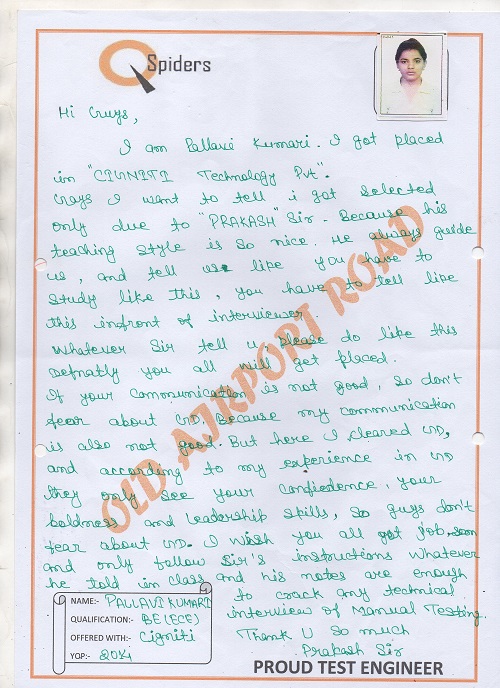 Q Spiders
Hi Guys,
I am Pallavi Kumari. I got placed
in "CIGNITI Technology Pvt".
Guys I want to tell i got selected
only due to "PRAKASH" Sir. Because his
teaching style is so nice. He always guide
us, and tell us like you have to
study like this, you have to tell like
this infront of interviewer.
Whatever Sir tell u, Please do like this
definatly you all will get placed.
If your communication is not good, so don't
fear about GD. Because my communication
is also not good. But here I cleared GD,
and according to my experience in GD
they only see your confidence, your
boldness and leadership skills, so guys don't
fear about GD. I wish you all get job soon
and only follow Sir's instructions whatever
he told in class and his notes are enough
to crack any technical
interview of Manual Testing.
Thank U so much
Prakash Sir
OLD AIRPORT ROAD
NAME:- PALLAVI KUMARI
QUALIFICATION:- BE (ECE)
OFFERED WITH:- Cigniti
YOP:- 2014
PROUD TEST ENGINEER